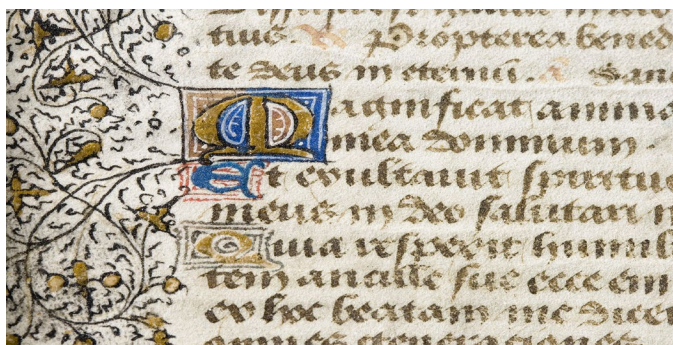 tuis Propterea bened
te deus in eternū. San
Magnificat anima
mea dominum.
Et exultauit spiritu
meus in deo salutari m
Quia respexit humil
tem ancille sue ecce eni
ex hoc beatam me dicen
omnes generationes